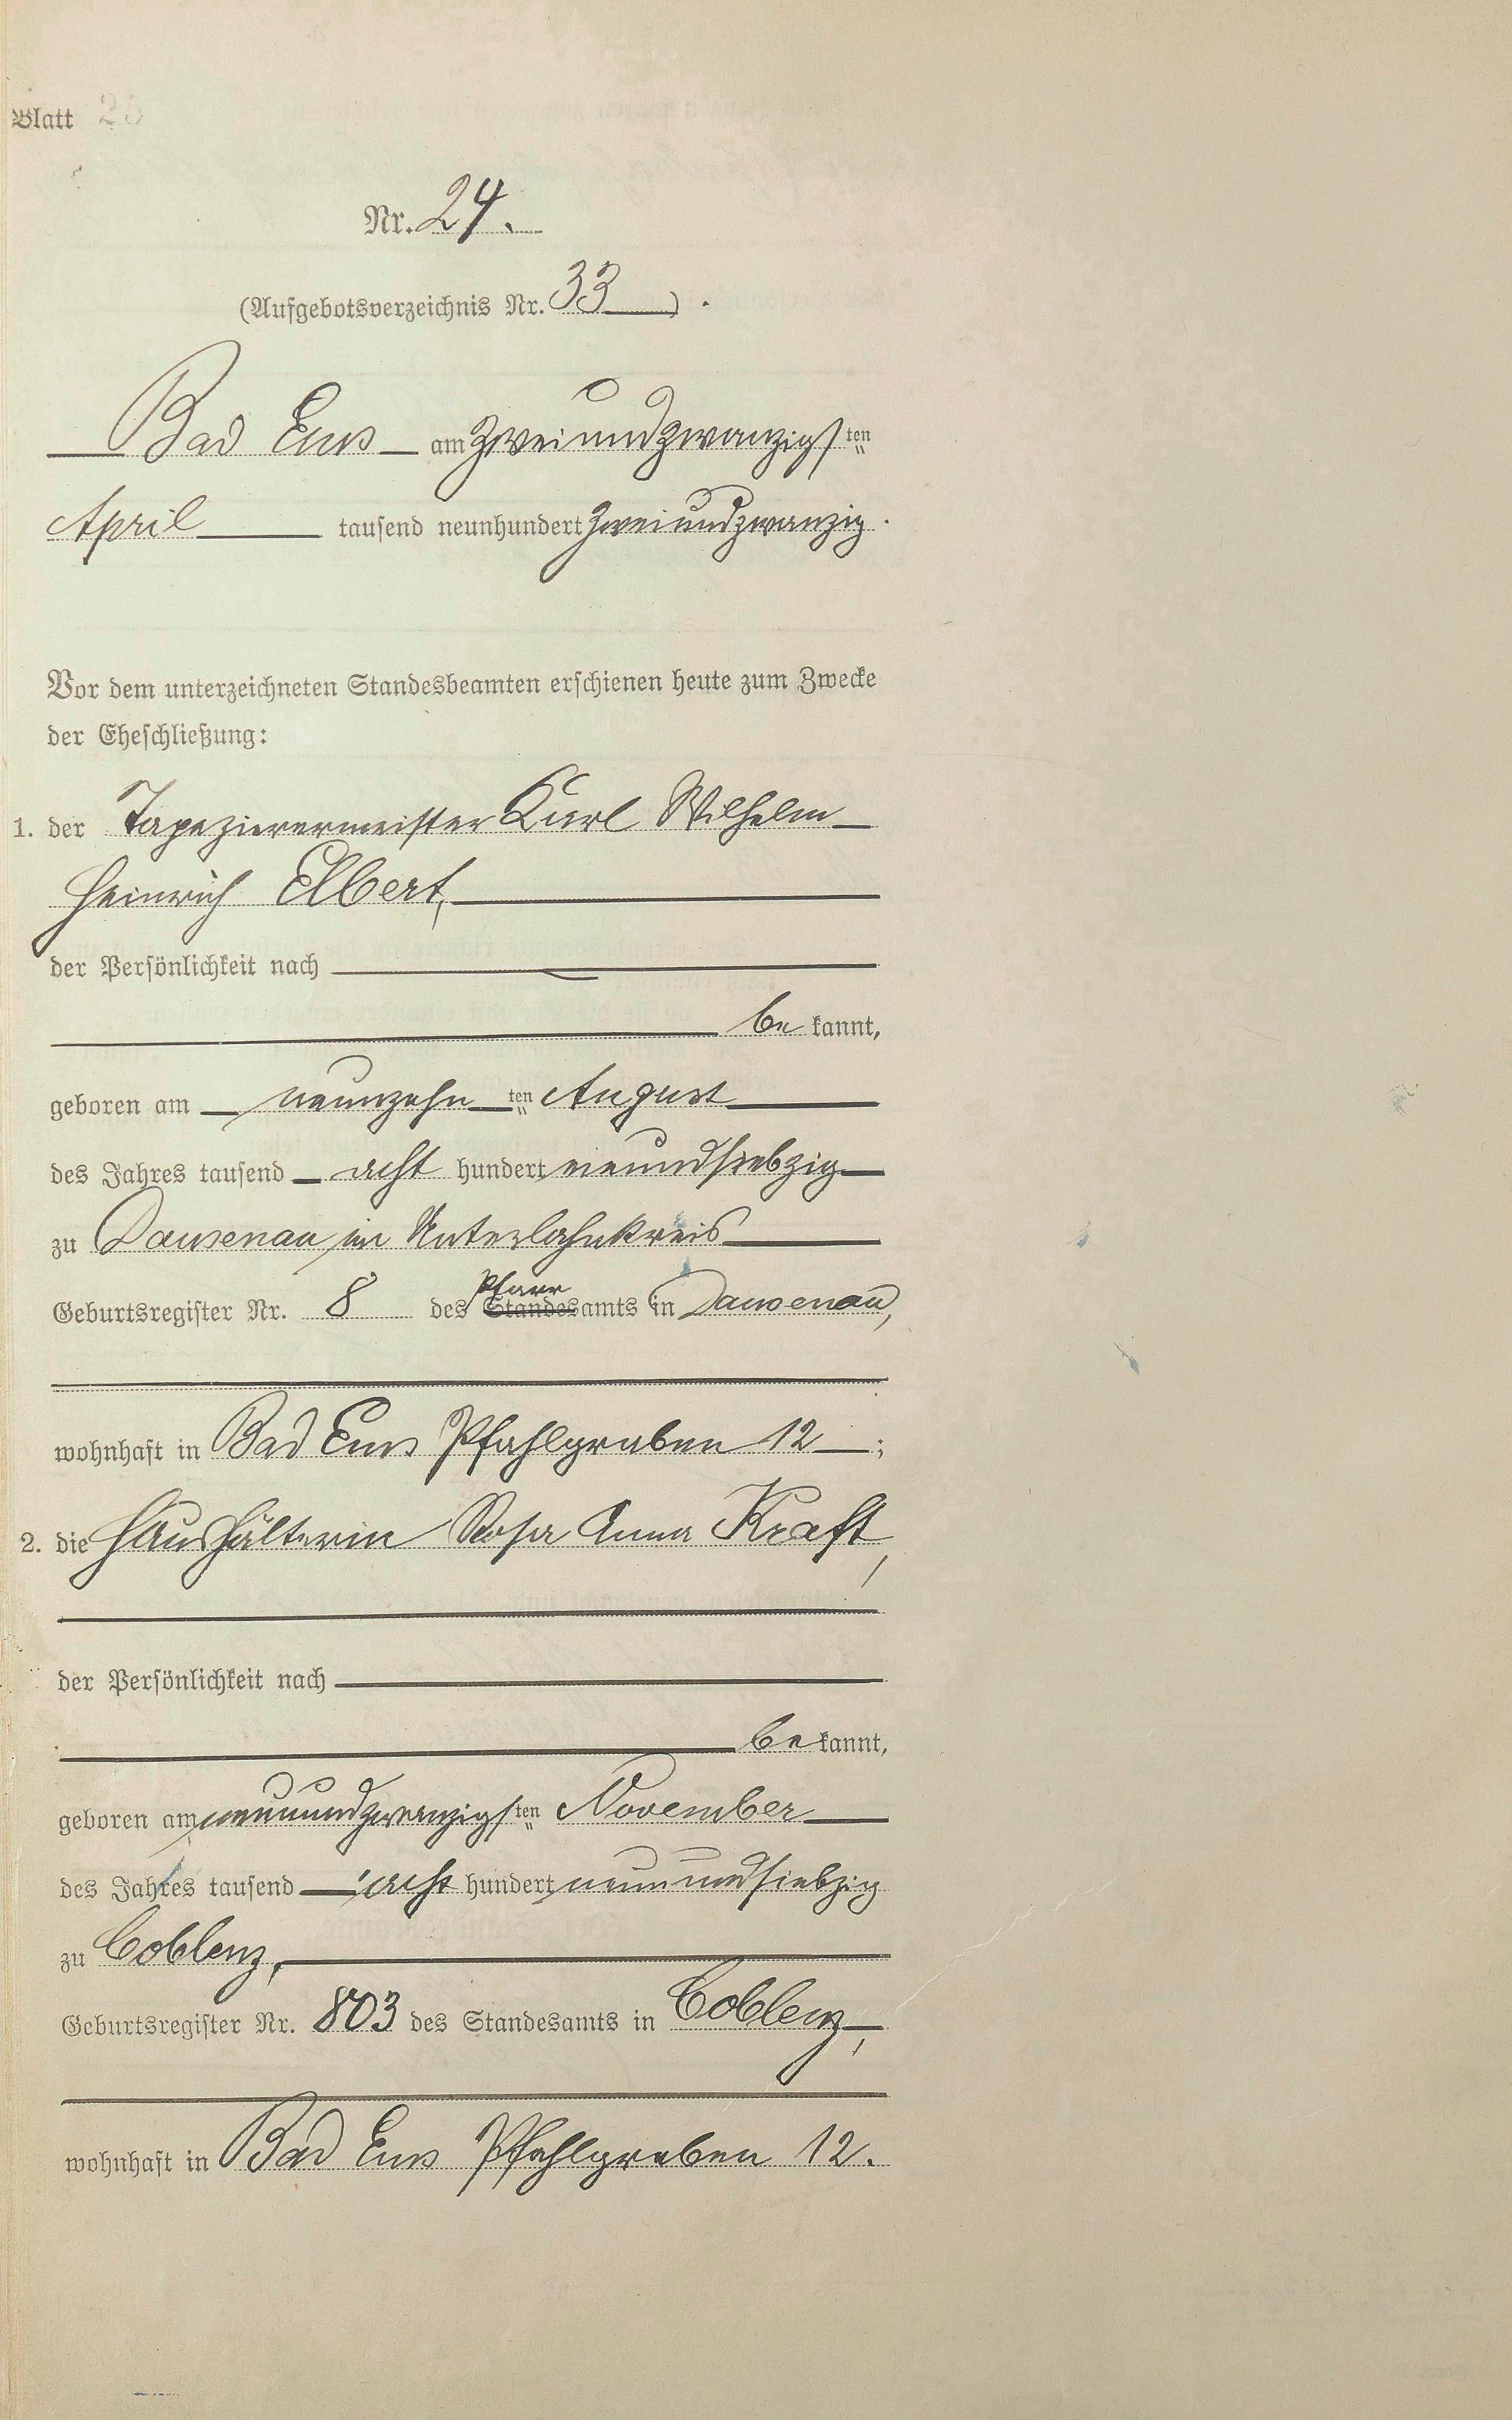 Blatt 25
Nr. 24.
(Aufgebotsverzeichnis Nr. 33).
Bad Ems am zweiundzwanzigsten
April tausend neunhundert zweiundzwanzig.
Vor dem unterzeichneten Standesbeamten erschienen heute zum Zwecke
der Eheschließung:
1. der Tapezierermeister Karl Wilhelm
Heinrich Elbert,
der Persönlichkeit nach
be kannt,
geboren am neunzehnten August
des Jahres tausend acht hundert vierundsiebzig
zu Dausenau im Unterlahnkreis
Geburtsregister Nr. 8 des Pfarr Standesamts in Dausenau,
wohnhaft in Bad Ems Pfahlgraben 12;
2. die Haushälterin Rosa Anna Kraft,
der Persönlichkeit nach
be kannt,
geboren am neunundzwanzigsten November
des Jahres tausend acht hundert neunundsiebzig
zu Coblenz,
Geburtsregister Nr. 803 des Standesamts in Coblenz,
wohnhaft in Bad Ems Pfahlgraben 12.